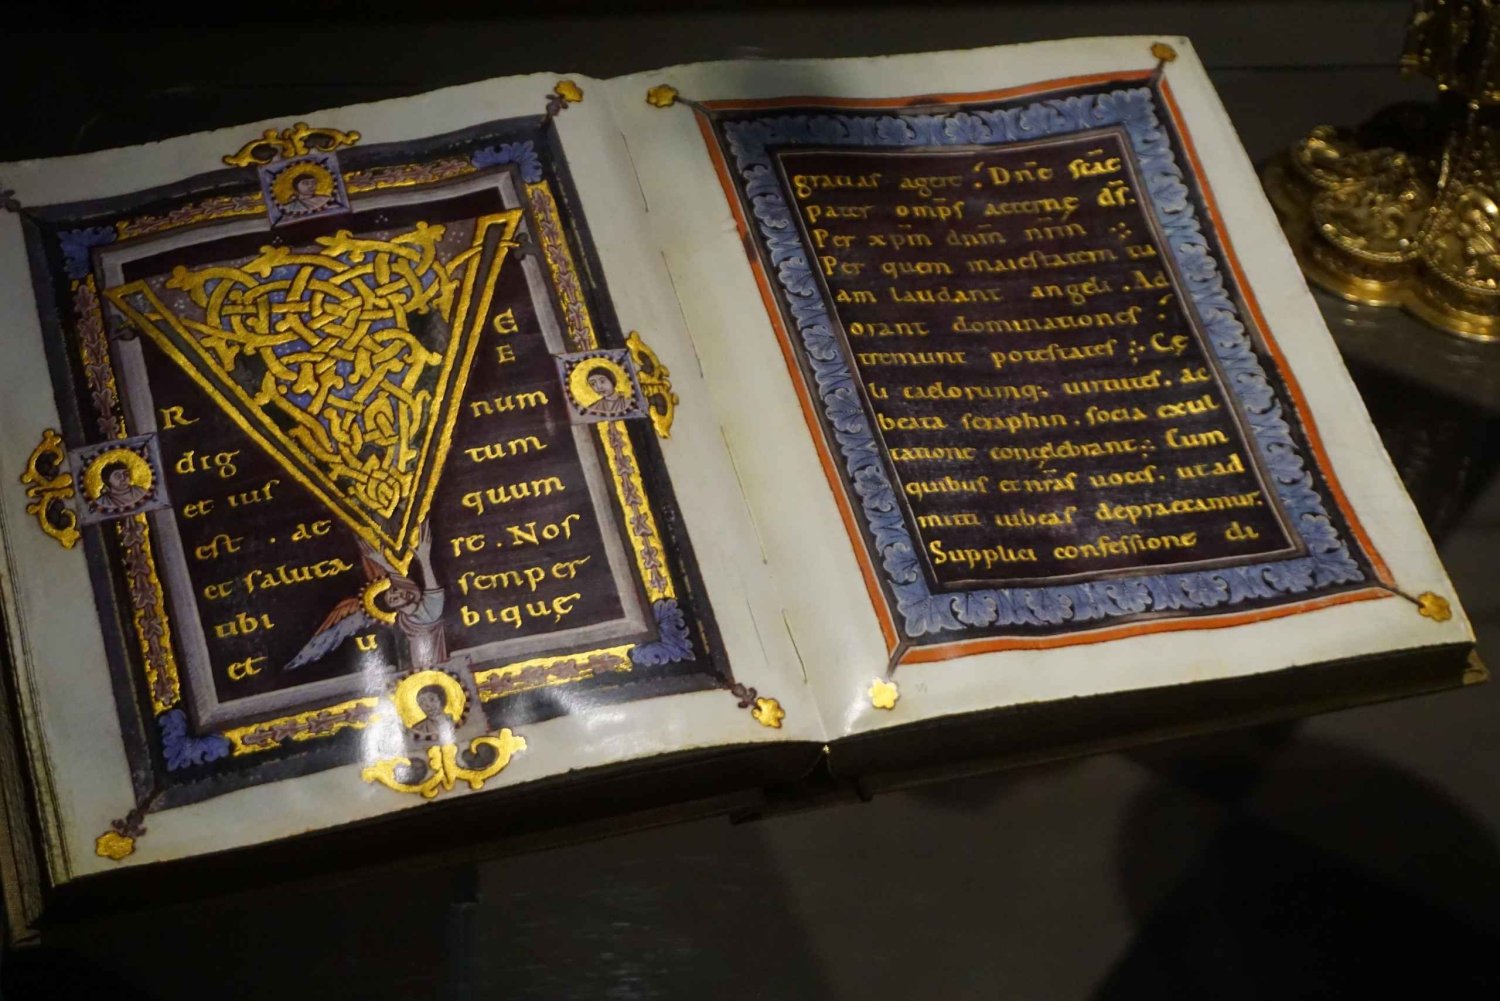 V E
R E
dig num
et ius tum
est . ae quum
et saluta re . Nos
ubi semper
et u biquę
gratias agere : Dn̄e sc̄ae
pater omp̄s aeternę ds̄.
Per xp̄m dn̄m nr̄m :
Per quem maiestatem tu
am laudant angeli . Ad
orant dominationes :
tremunt potestates : Cę
li caelorumq; uirtutes . ac
beata seraphin . socia exul
tatione concelebrant : Cum
quibus et nr̄as uoces . ut ad
mitti iubeas depraecamur.
Supplici confessione di